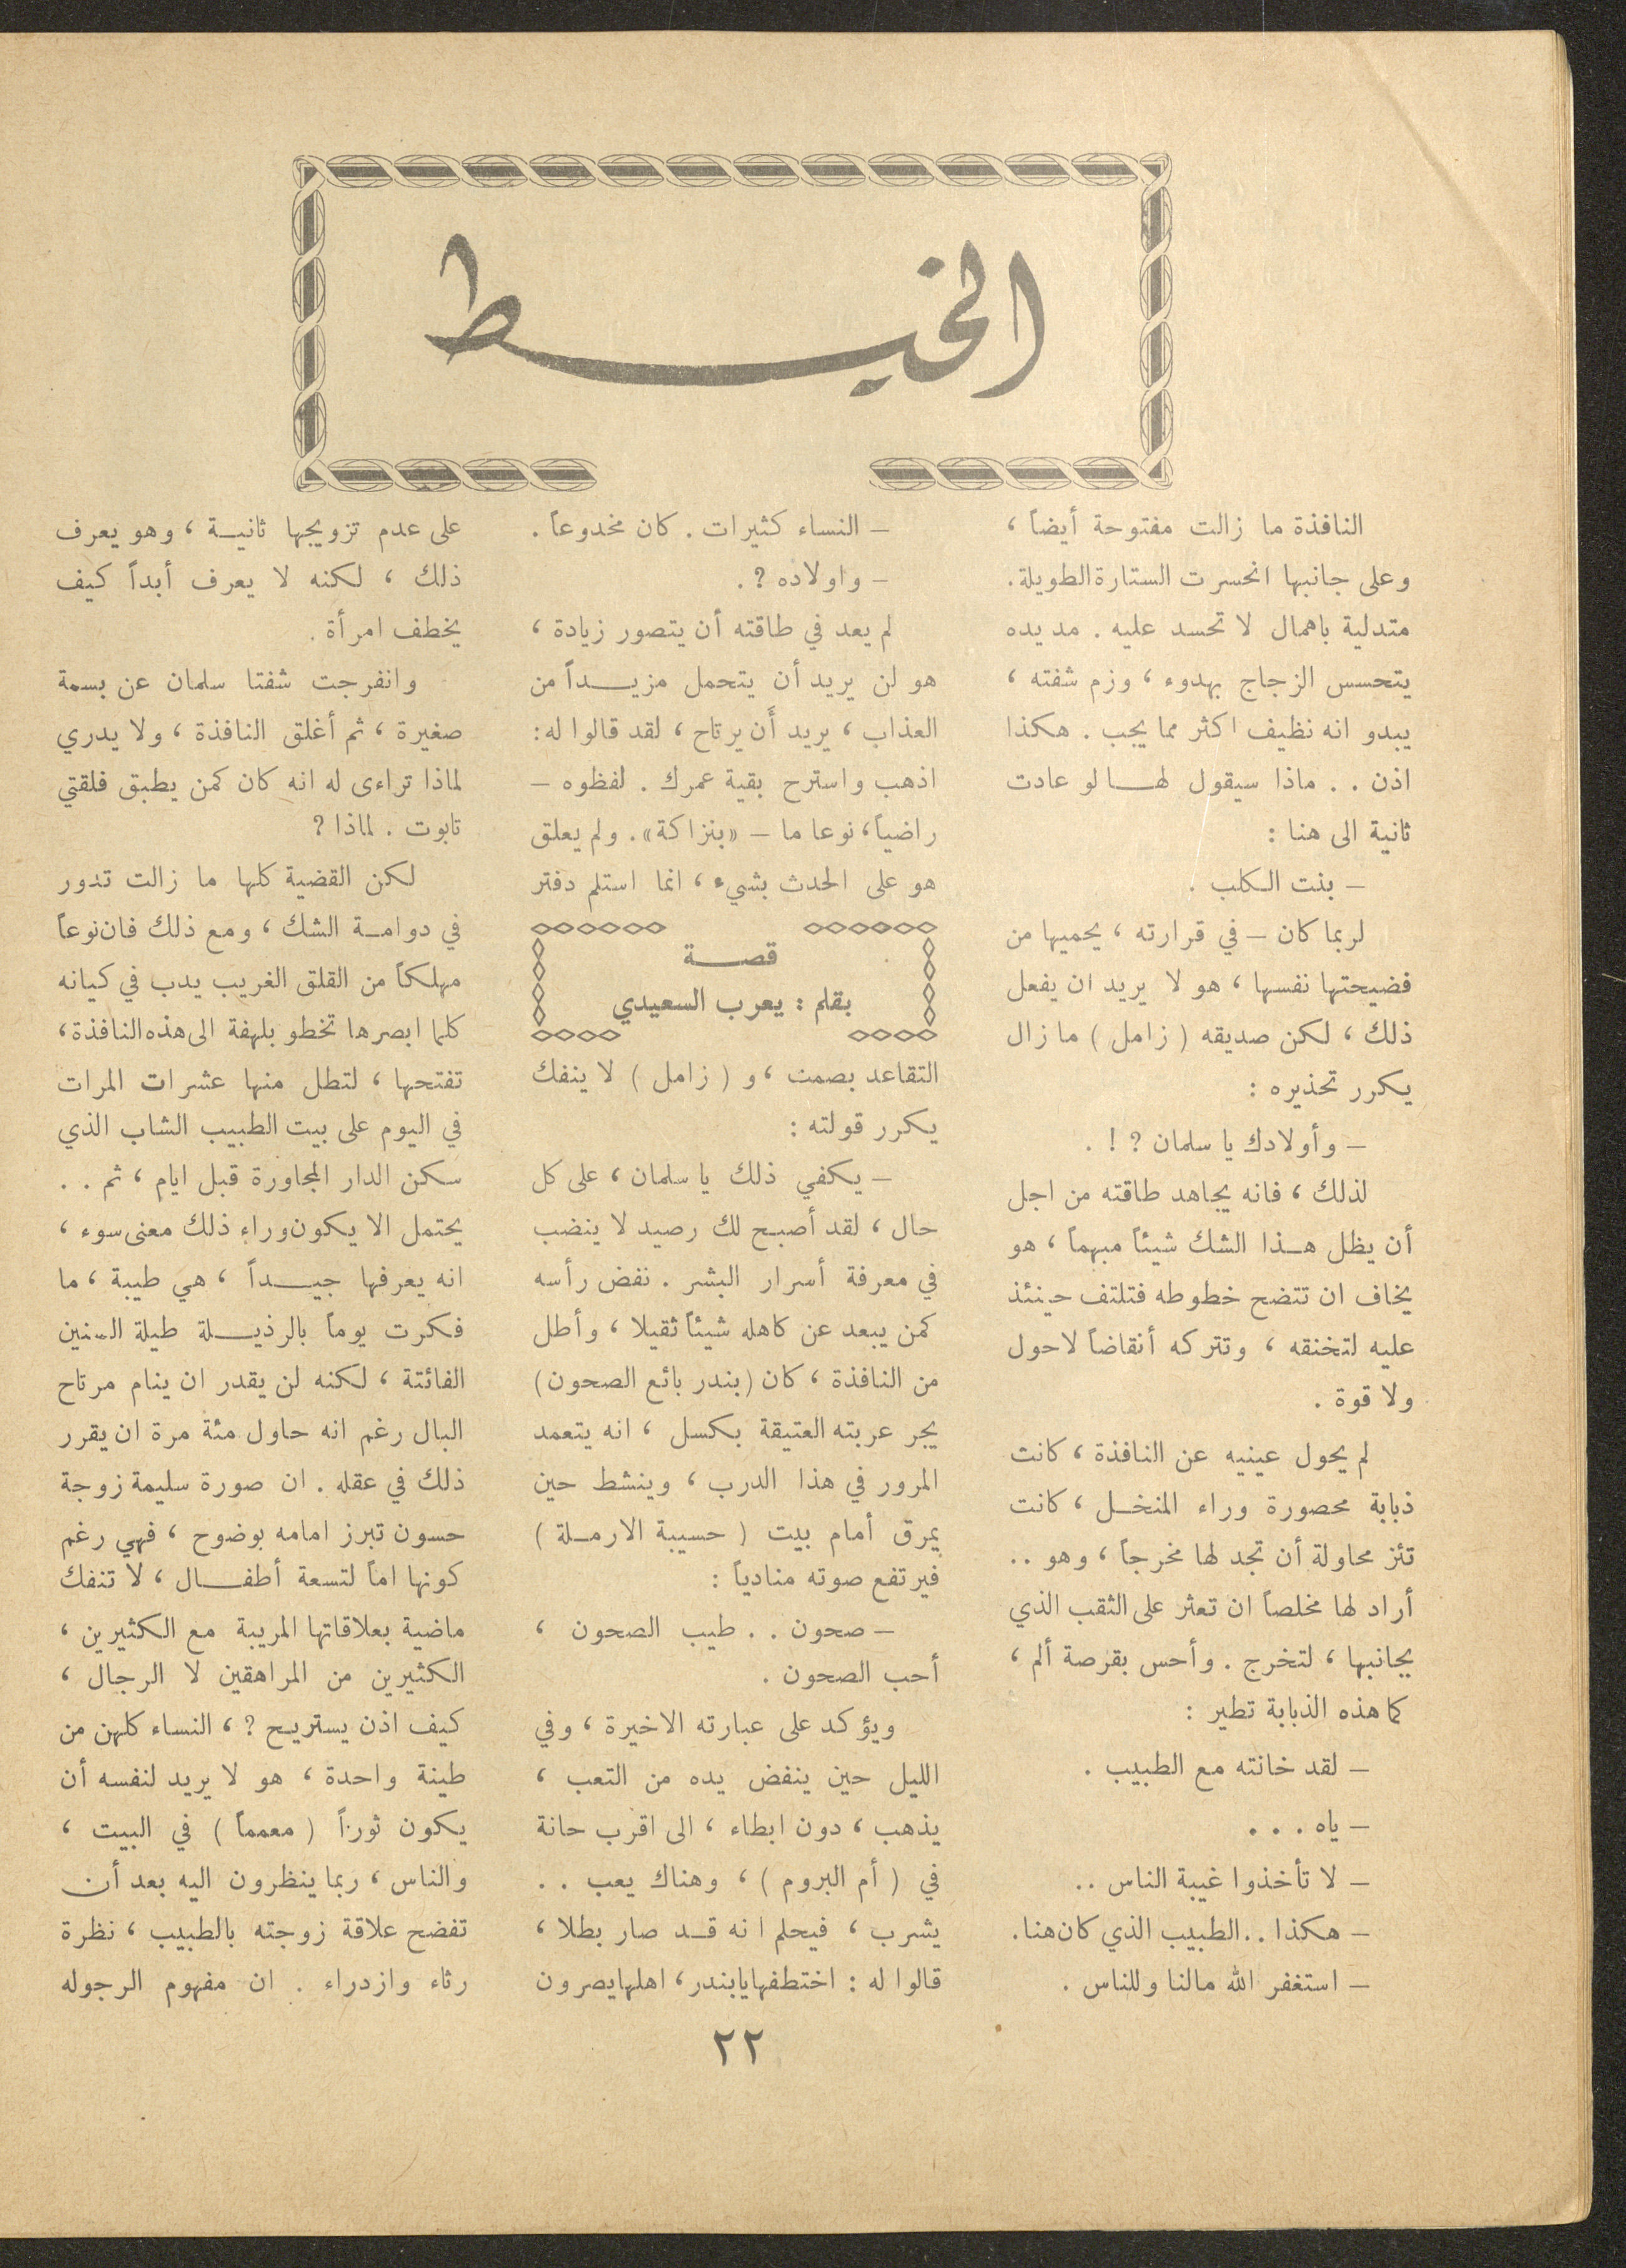 الخيط
النافذة ما زالت مفتوحة أيضاً ،
وعلى جانبها انحسرت الستارة الطويلة.
متدلية باهمال لا تحسد عليه . مد يده
يتحسس الزجاج بهدوء ، وزم شفته ،
يبدو انه نظيف اكثر مما يجب . هكذا
اذن . . ماذا سيقول لها لو عادت
ثانية الى هنا :
– بنت الكلب .
لربما كان – في قرارته ، يحميها من
فضيحتها نفسها ، هو لا يريد ان يفعل
ذلك ، لكن صديقه ( زامل ) ما زال
يكرر تحذيره :
– وأولادك يا سلمان ? ! .
لذلك ، فانه يجاهد طاقته من اجل
أن يظل هذا الشك شيئاً مبهماً ، هو
يخاف ان تتضح خطوطه فتلتف حينئذ
عليه لتخنقه ، وتتركه أنقاضاً لاحول
ولا قوة .
لم يحول عينيه عن النافذة ، كانت
ذبابة محصورة وراء المنخل ، كانت
تئز محاولة أن تجد لها مخرجاً ، وهو ..
أراد لها مخلصاً ان تعثر على الثقب الذي
يجانبها ، لتخرج . وأحس بقرصة ألم ،
كما هذه الذبابة تطير :
– لقد خانته مع الطبيب .
– ياه . . .
– لا تأخذوا غيبة الناس ..
– هكذا .. الطبيب الذي كان هنا.
– استغفر الله مالنا وللناس .
– النساء كثيرات . كان مخدوعاً .
– واولاده ? .
لم يعد في طاقته أن يتصور زيادة ،
هو لن يريد أن يتحمل مزيداً من
العذاب ، يريد أن يرتاح ، لقد قالوا له:
اذهب واسترح بقية عمرك . لفظوه –
راضياً، نوعا ما – «بنزاكة». ولم يعلق
هو على الحدث بشيء ، انما استلم دفتر
قصة
بقلم : يعرب السعيدي
التقاعد بصمت ، و ( زامل ) لا ينفك
يكرر قولته :
– يكفي ذلك يا سلمان ، على كل
حال ، لقد أصبح لك رصيد لا ينضب
في معرفة أسرار البشر . نفض رأسه
كمن يبعد عن كاهله شيئاً ثقيلا ، وأطل
من النافذة ، كان (بندر بائع الصحون)
يجر عربته العتيقة بكسل ، انه يتعمد
المرور في هذا الدرب ، وينشط حين
يمرق أمام بيت ( حسيبة الارملة )
فيرتفع صوته منادياً :
– صحون . . طيب الصحون ،
أحب الصحون .
ويؤكد على عبارته الاخيرة ، وفي
الليل حين ينفض يده من التعب ،
يذهب ، دون ابطاء ، الى اقرب حانة
في ( أم البروم ) ، وهناك يعب . .
يشرب ، فيحلم انه قد صار بطلا ،
قالوا له : اختطفها يابندر، اهلها يصرون
على عدم تزويجها ثانية ، وهو يعرف
ذلك ، لكنه لا يعرف أبداً كيف
يخطف امرأة .
وانفرجت شفتا سلمان عن بسمة
صغيرة ، ثم أغلق النافذة ، ولا يدري
لماذا تراءى له انه كان كمن يطبق فلقتي
تابوت . لماذا ?
لكن القضية كلها ما زالت تدور
في دوامة الشك ، ومع ذلك فان نوعاً
مهلكاً من القلق الغريب يدب في كيانه
كلما ابصرها تخطو بلهفة الى هذه النافذة،
تفتحها ، لتطل منها عشرات المرات
في اليوم على بيت الطبيب الشاب الذي
سكن الدار المجاورة قبل ايام ، ثم . .
يحتمل الا يكون وراء ذلك معنى سوء ،
انه يعرفها جيداً ، هي طيبة ، ما
فكرت يوماً بالرذيلة طيلة السنين
الفائتة ، لكنه لن يقدر ان ينام مرتاح
البال رغم انه حاول مئة مرة ان يقرر
ذلك في عقله . ان صورة سليمة زوجة
حسون تبرز امامه بوضوح ، فهي رغم
كونها اماً لتسعة أطفال ، لا تنفك
ماضية بعلاقاتها المريبة مع الكثيرين ،
الكثيرين من المراهقين لا الرجال ،
كيف اذن يستريح ? ، النساء كلهن من
طينة واحدة ، هو لا يريد لنفسه أن
يكون ثوراً ( معمماً ) في البيت ،
والناس ، ربما ينظرون اليه بعد أن
تفضح علاقة زوجته بالطبيب ، نظرة
رثاء وازدراء . ان مفهوم الرجوله
٢٢